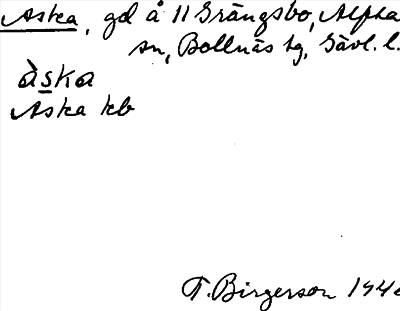 Aska, gd å 11 Grängsbo, Alfta
sn, Bollnäs tg, Gävl. l.
àska
Aska kb
T. Birgerson 194